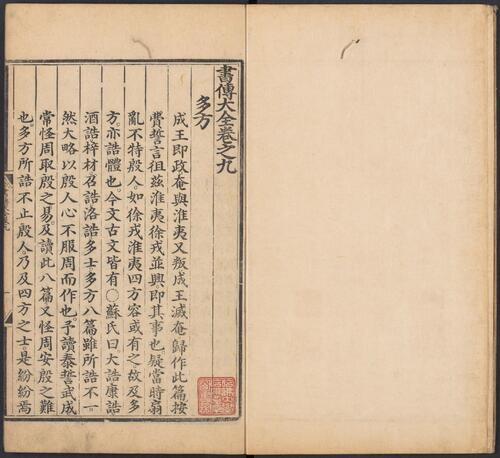 書傳大全卷之九
多方
成王即政奄與淮夷又叛成王滅奄歸作此篇按
費誓言徂茲淮夷徐戎並興即其事也疑當時扇
亂不特殷人如徐戎淮夷四方容或有之故及多
方亦誥體也今文古文皆有○蘇氏曰大誥康誥
酒誥梓材召誥洛誥多士多方八篇雖所誥不一
然大略以殷人心不服周而作也予讀泰誓武成
常怪周取殷之易及讀此八篇又怪周安殷之難
也多方所誥不止殷人乃及四方之士是紛紛焉